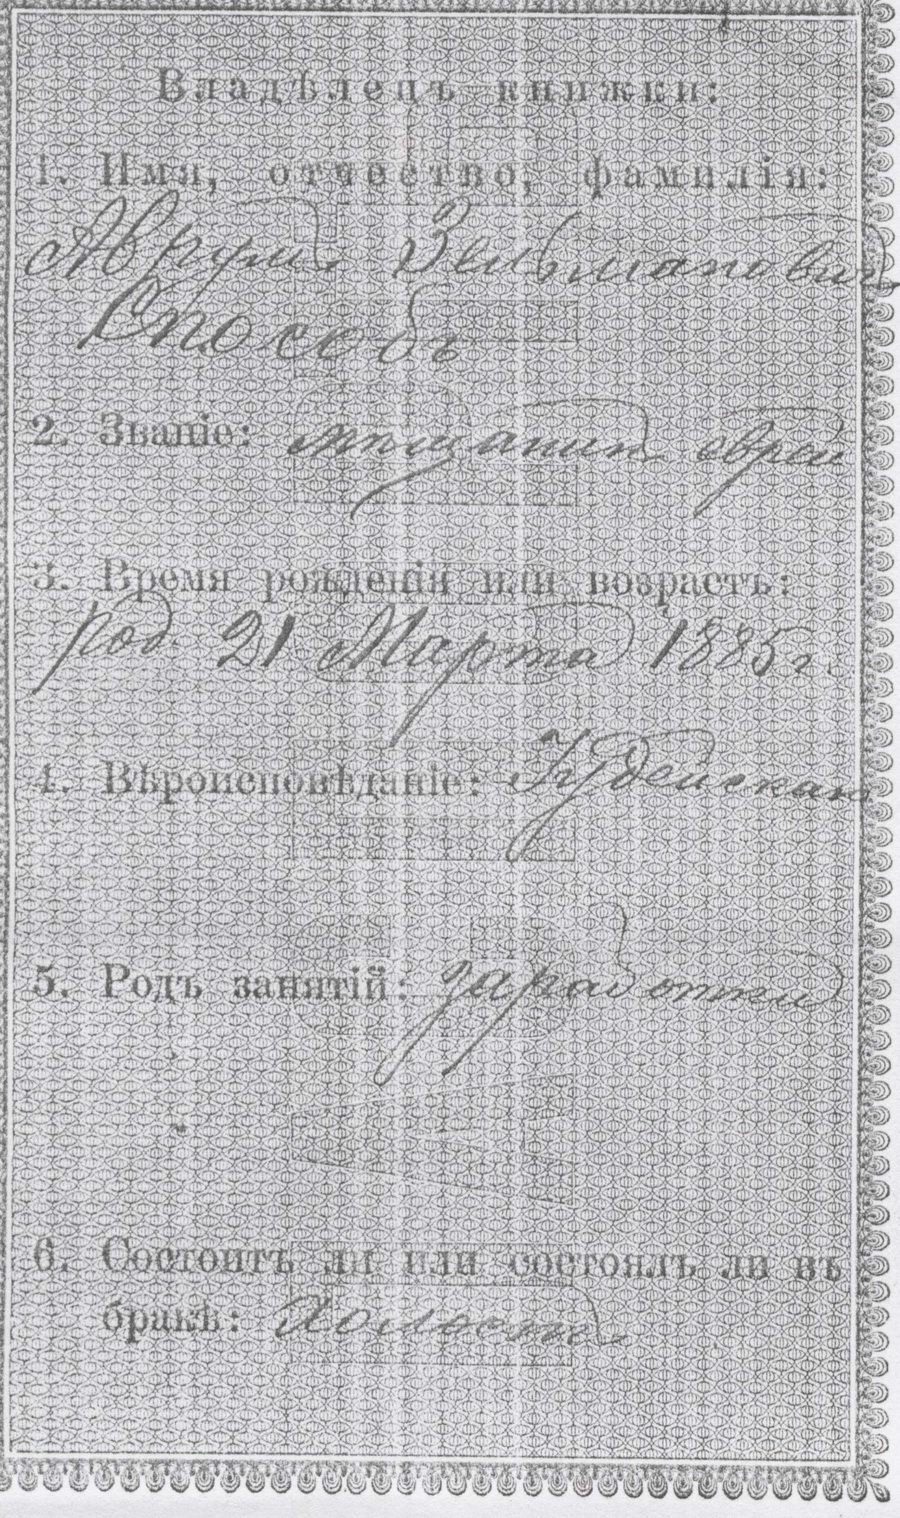 Владѣлецъ книжки:
1. Имя, отчество, фамилія:
Аврумъ Зельмановичъ
Способъ
2. Званіе: мѣщанинъ еврей
3. Время рожденія или возрастъ:
род. 21 Марта 1885 г.
4. Вѣроисповѣданіе: Іудейскаго
5. Родъ занятій: заработки
6. Состоитъ ли или состоялъ ли въ
бракѣ: Холостъ